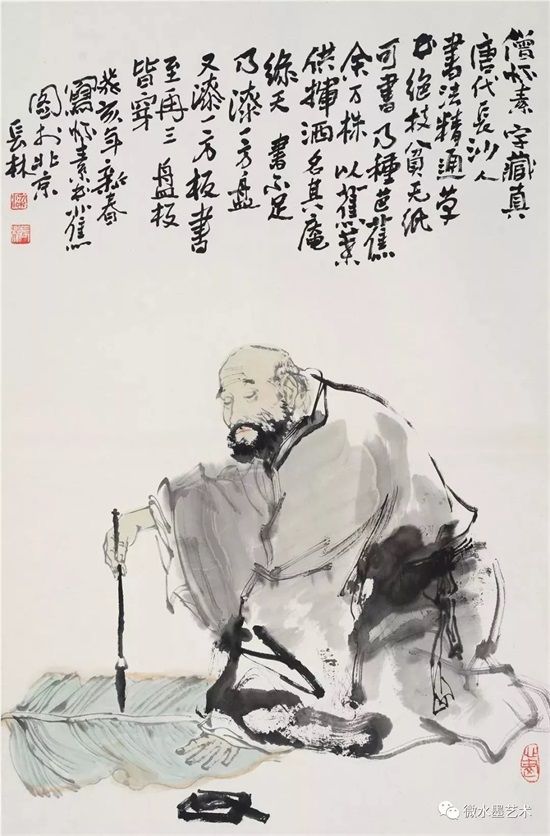 僧怀素字藏真
唐代長沙人
書法精通草
书绝技貧无纸
可書乃種芭蕉
余万株以蕉葉
供揮洒名其庵
綠天 書不足
乃漆一方盘
又漆一方板書
至再三盘板
皆穿
癸亥年新春
寫怀素书蕉
图於北京
長林
微水墨艺术